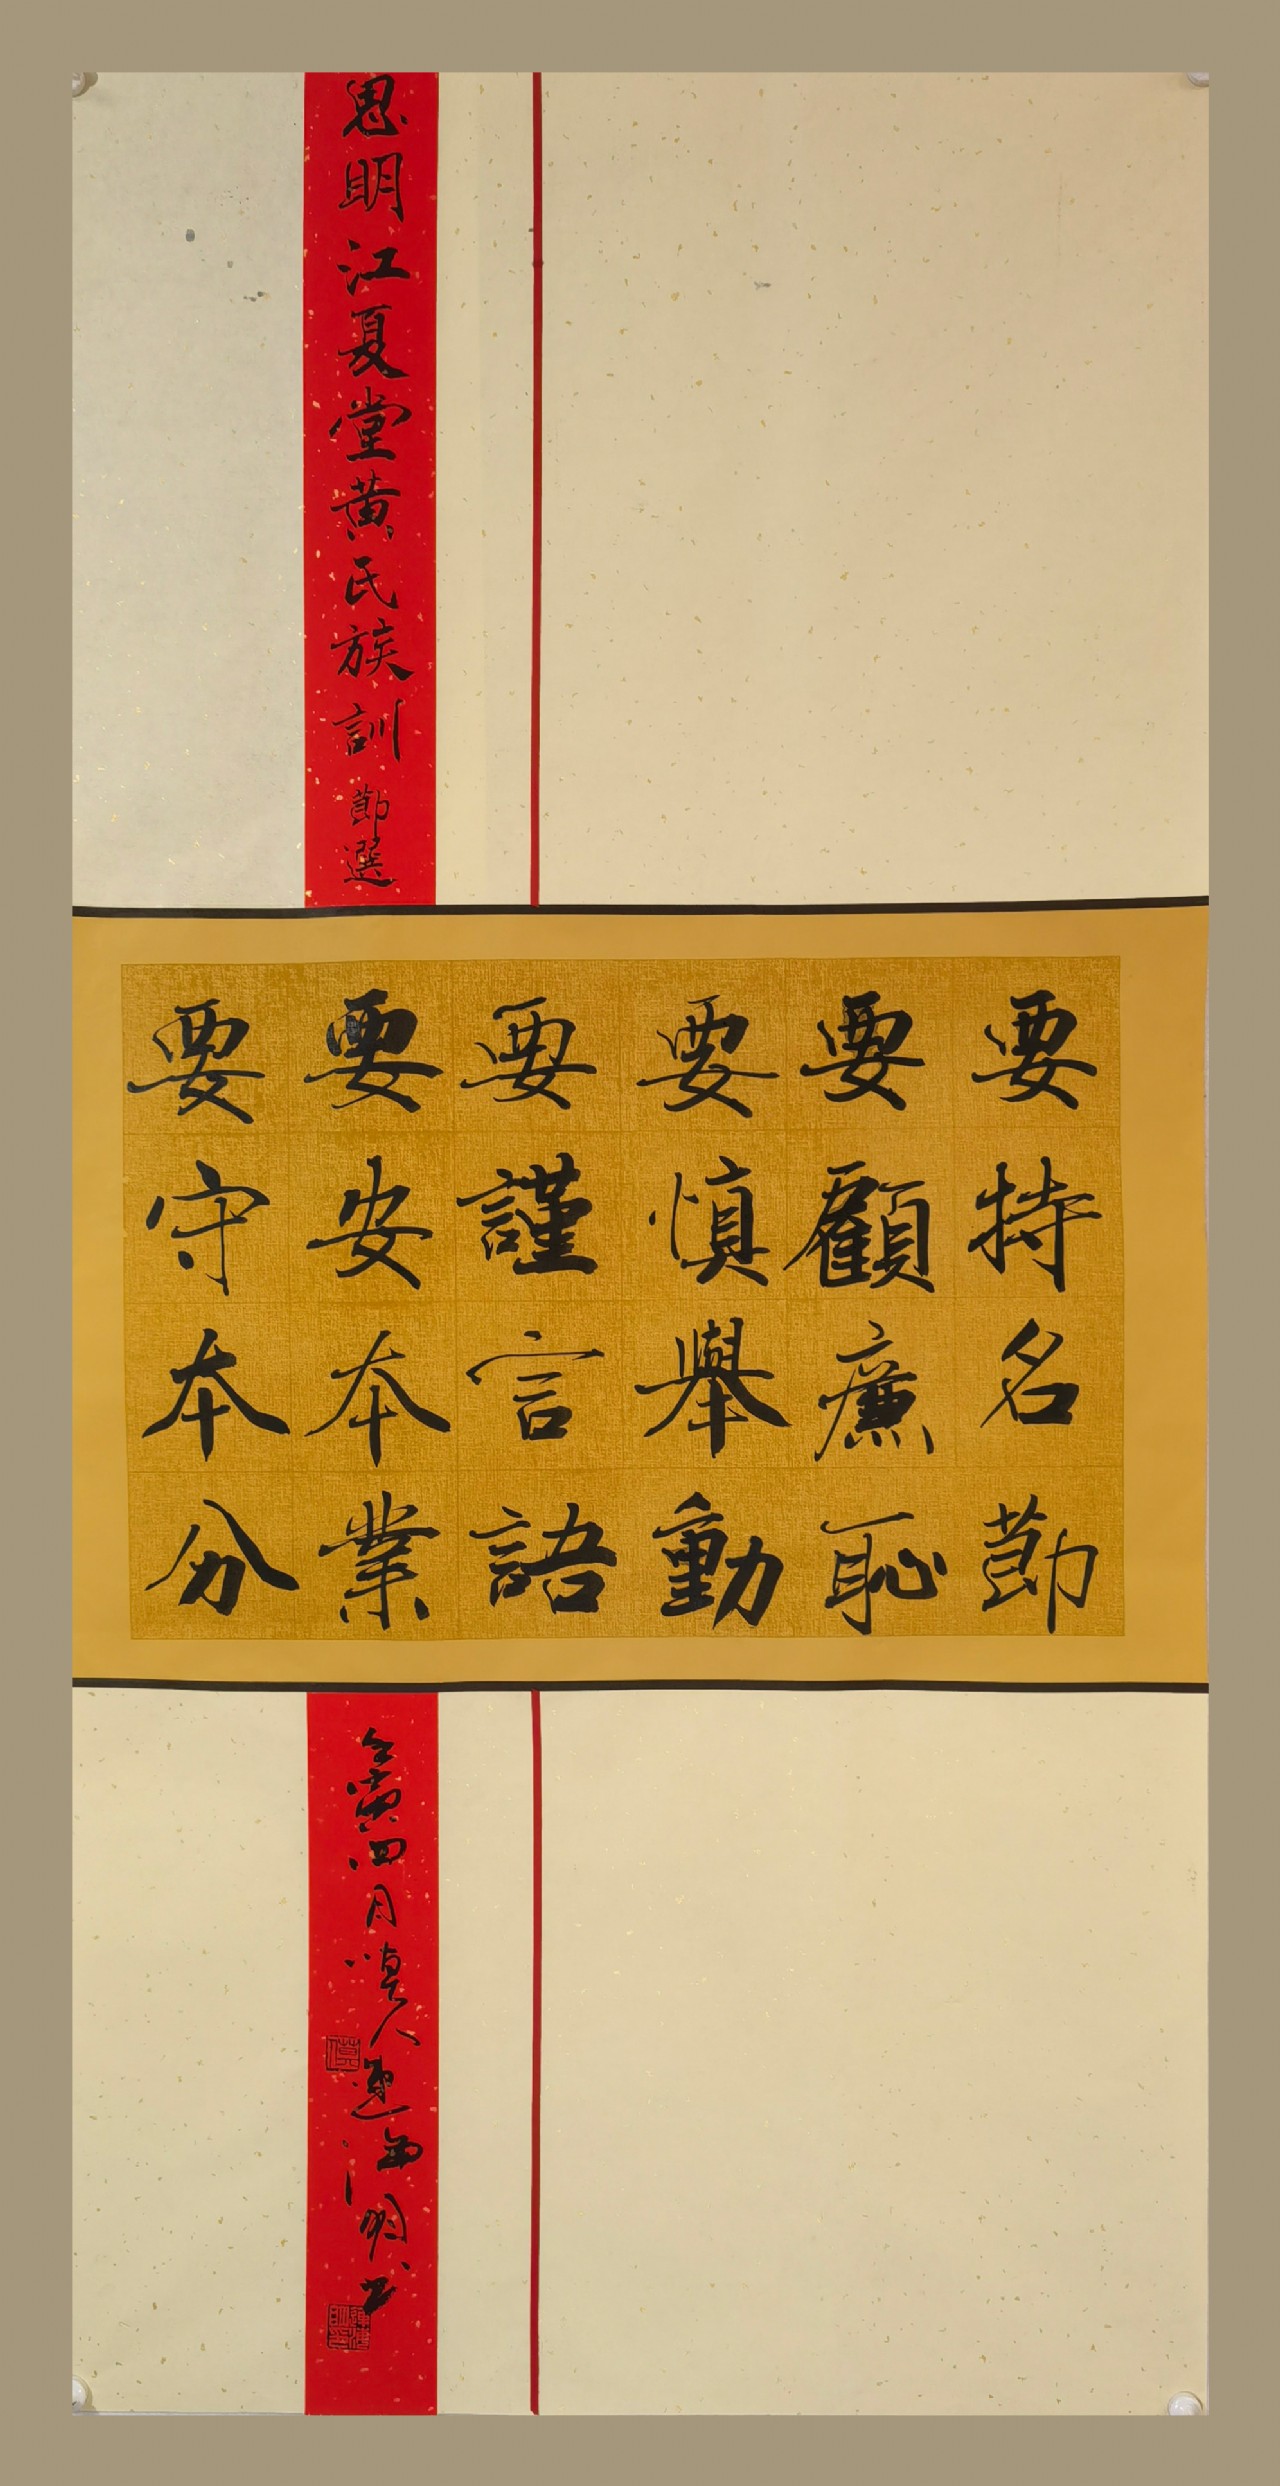 思明江夏堂黄氏族訓 節選
要持名節
要顧廉恥
要慎舉動
要謹言語
要安本業
要守本分
壬寅四月慎人連海明书